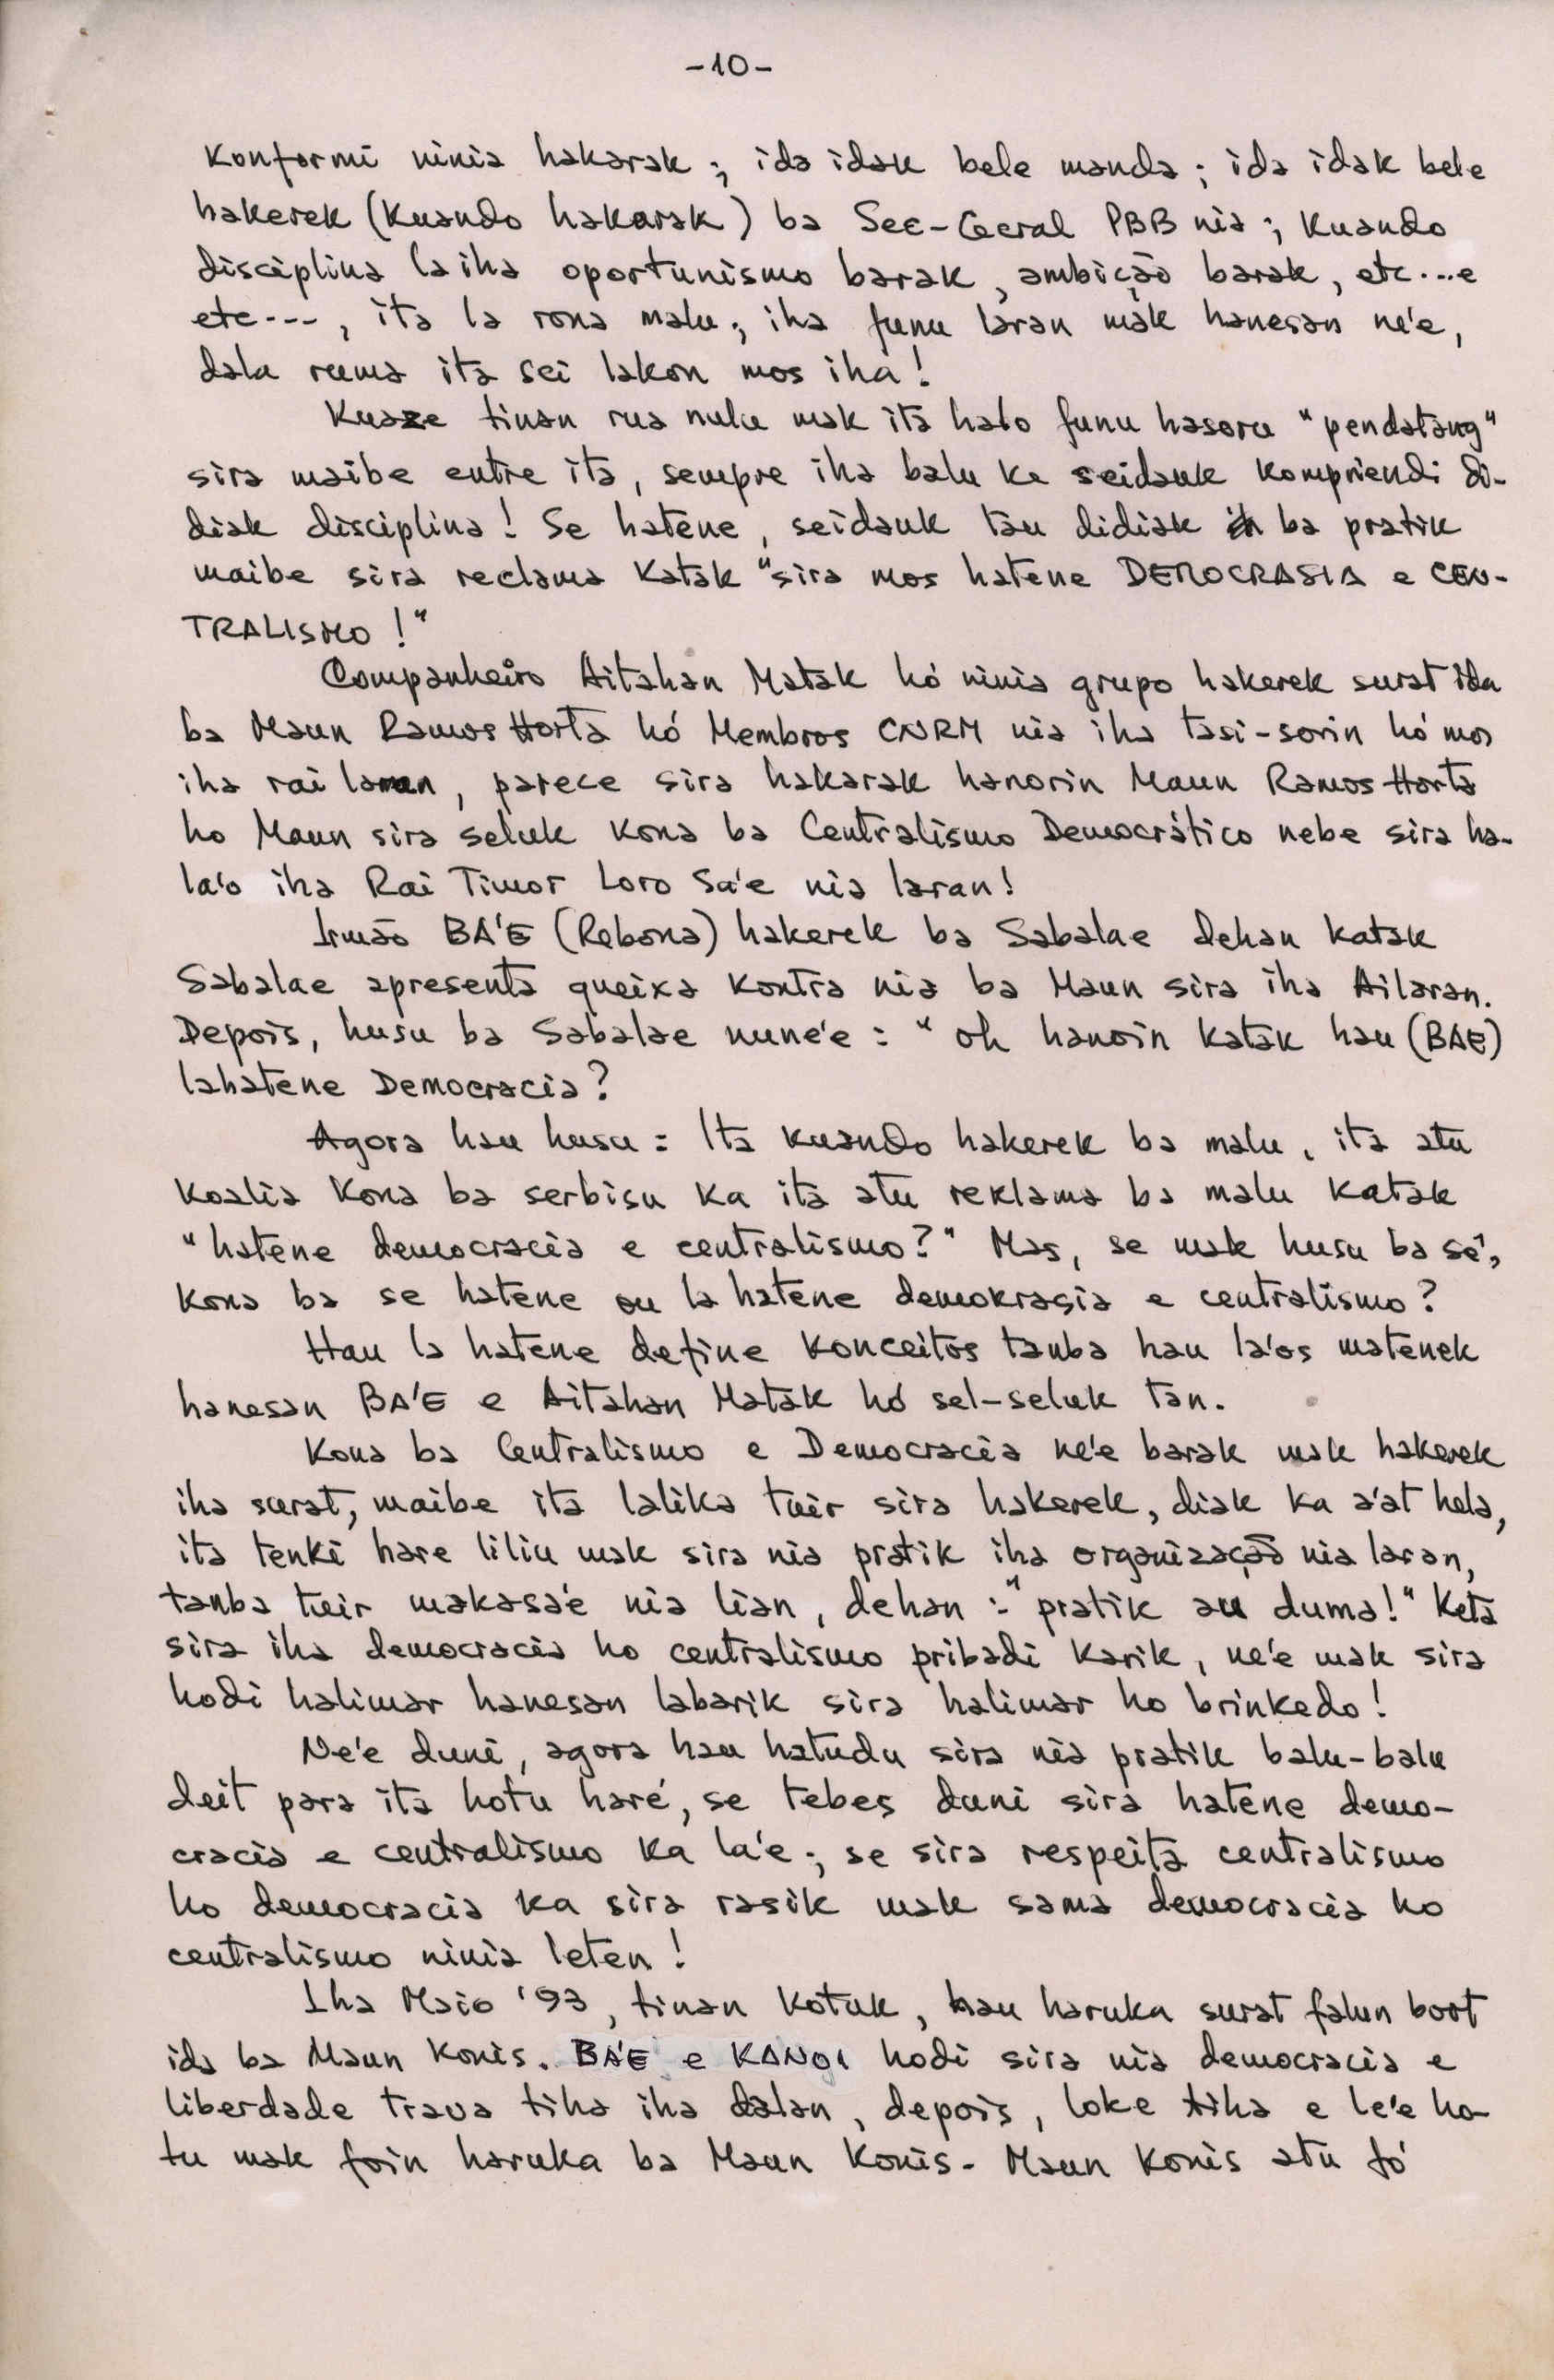 -10-
Konformi ninia hakarak ; ida idak bele manda ; ida idak bele
hakerek (Kuando hakarak) ba Sec-Geral PBB nia ; Kuando
disciplina la iha oportunismo barak, ambição barak, etc...e
etc---, ita la rona malu ; iha funu laran mak hanesan ne'e,
dala ruma ita sei lakon mos iha !
Kuaze tinan rua nulu mak ita halo funu hasoru "pendatang"
sira maibe entre ita, sempre iha balu ke seidauk Kompriendi di-
diak disciplina ! Se hatene, seidauk tau didiak ba pratik
maibe sira reclama Katak "sira mos hatene DEMOCRASIA e CEN-
TRALISMO !"
Companheiro Aitahan Matak hó ninia grupo hakerek surat ida
ba Maun Ramos Horta hó Membros CNRM nia iha tasi-sorin hó mos
iha rai laran, parece sira hakarak hanorin Maun Ramos Horta
ho Maun sira seluk Kona ba Centralismo Democrático nebe sira ha-
la'o iha Rai Timor Loro Sa'e nia laran !
Irmão BA'E (Rebona) hakerek ba Sabalae dehan Katak
Sabalae apresenta queixa Kontra nia ba Maun sira iha Ailaran.
Depois, husu ba Sabalae nune'e : " oh hanoin Katak hau (BAE)
lahatene Democracia ?
Agora hau husu : Ita kuando hakerek ba malu, ita atu
Koalia Kona ba serbisu Ka ita atu reklama ba malu Katak
"hatene democracia e centralismo ?" Mas, se mak husu ba sé,
Kona ba se hatene ou la hatene demokrasia e centralismo ?
Hau la hatene define Konceitos tanba hau la'os matenek
hanesan BA'E e Aitahan Matak hó sel-seluk tan.
Kona ba Centralismo e Democracia ne'e barak mak hakerek
iha surat, maibe ita lalika tuir sira hakerek, diak Ka a'at hela,
ita tenki hare liliu mak sira nia pratik iha organização nia laran,
tanba tuir makasa'e nia lian, dehan :-"pratik au duma!" Keta
sira iha democracia ho centralismo pribadi Karik, ne'e mak sira
hodi halimar hanesan labarik sira halimar ho brinkedo !
Ne'e duni, agora hau hatudu sira nia pratik balu-balu
deit para ita hotu haré, se tebes duni sira hatene demo-
cracia e centralismo Ka la'e ; se sira respeita centralismo
ho democracia Ka sira rasik mak sama democracia ho
centralismo ninia leten !
Iha Maio '93, tinan Kotuk, hau haruka surat falun boot
ida ba Maun Konis. BA'E e KANOI hodi sira nia democracia e
liberdade trava tiha iha dalan, depois, loke tiha e le'e ho-
tu mak foin haruka ba Maun Konis. Maun Konis atu fó